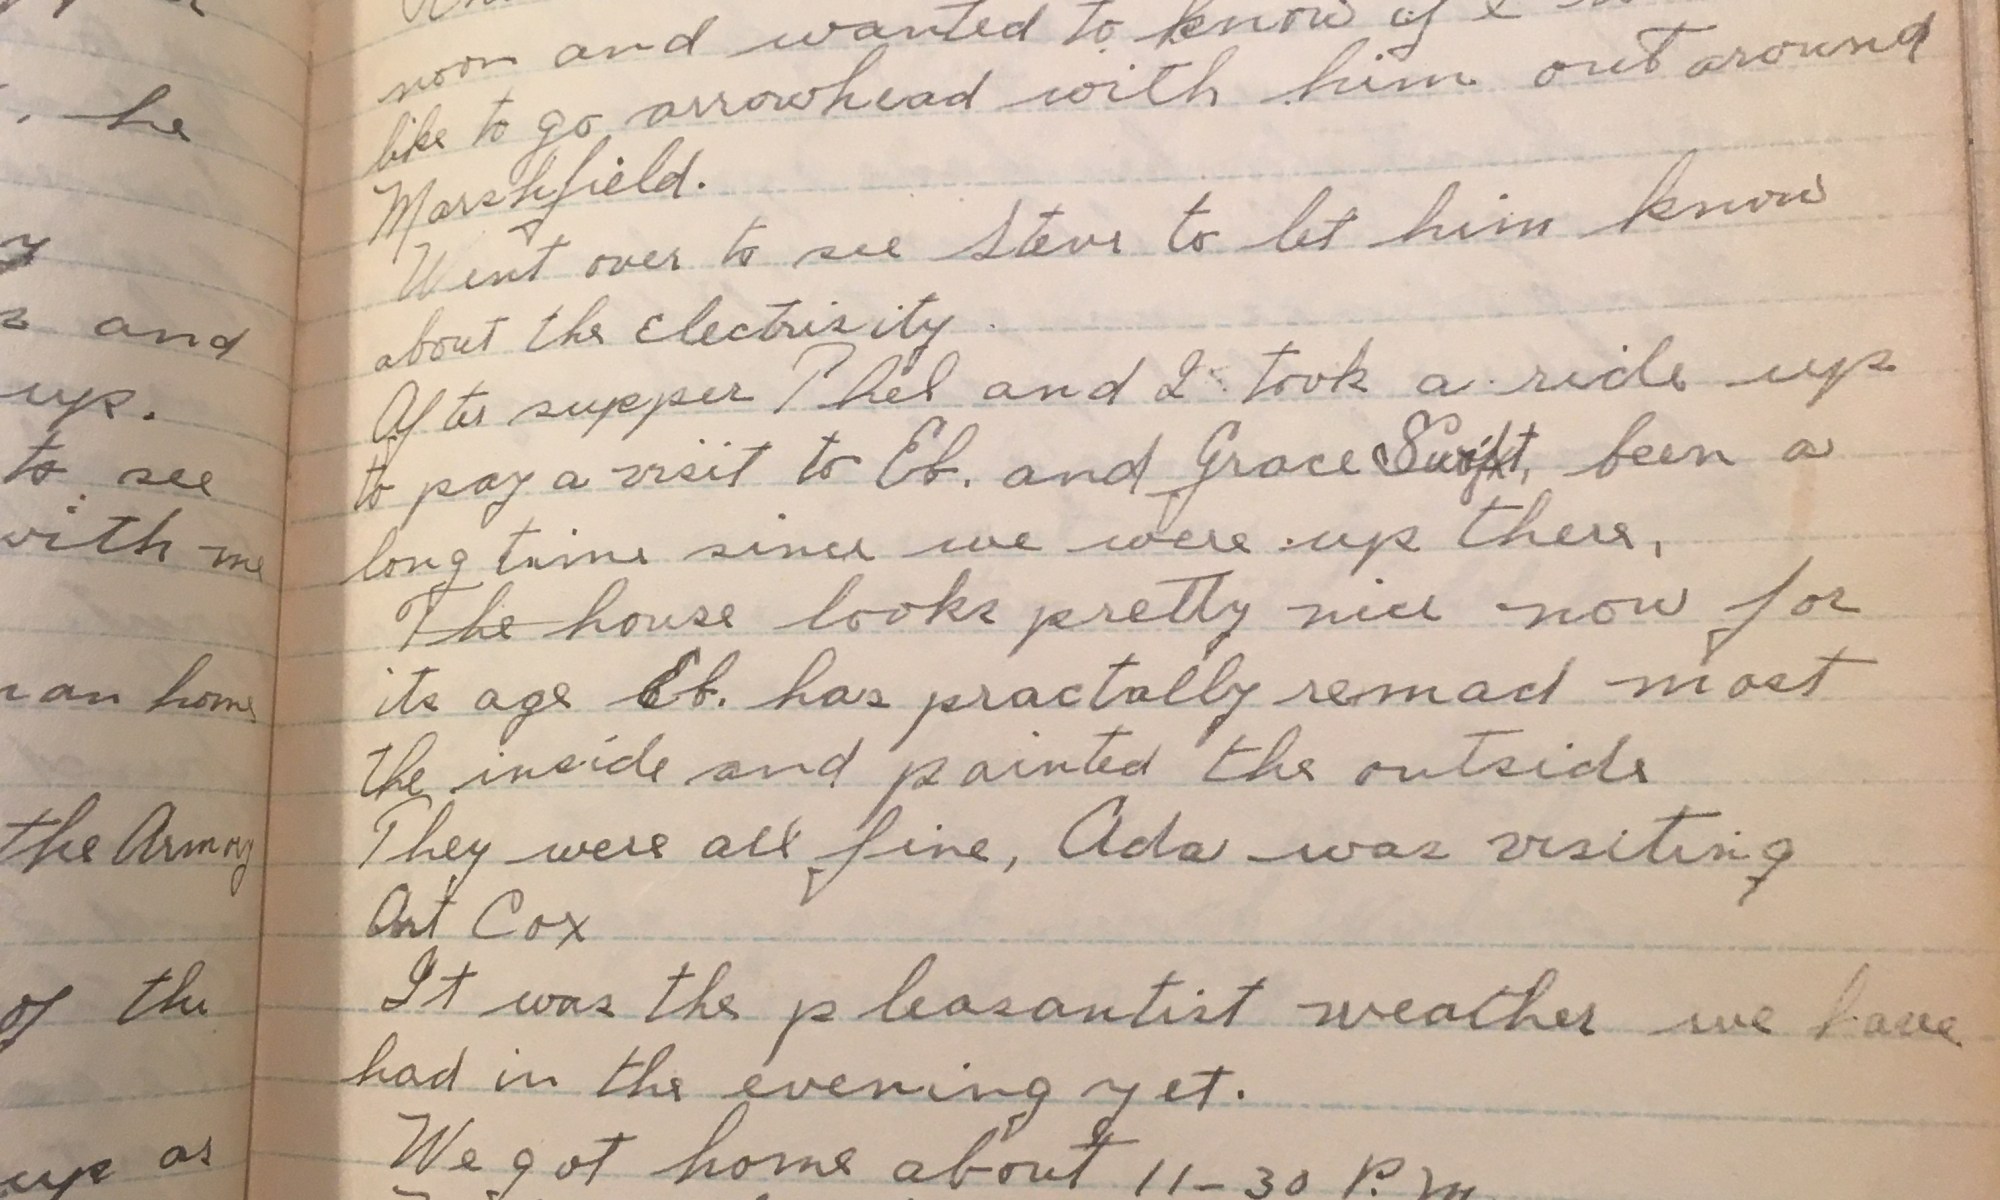 he
and
up.
to see
with me
an home
the Armory
of the
up as
noon and wanted to know if I
like to go arrowhead with him out around
Marshfield.
Went over to see Steve to let him know
about the electrisity.
After supper Phel and I took a ride up
to pay a visit to Eb. and Grace Swift, been a
long time since we were up there,
The house looks pretty nice now for
its age Eb. has practally remad most
the inside and painted the outside
They were all fine, Ada was visiting
Art Cox
It was the pleasantist weather we have
had in the evening yet.
We got home about 11-30 P.M